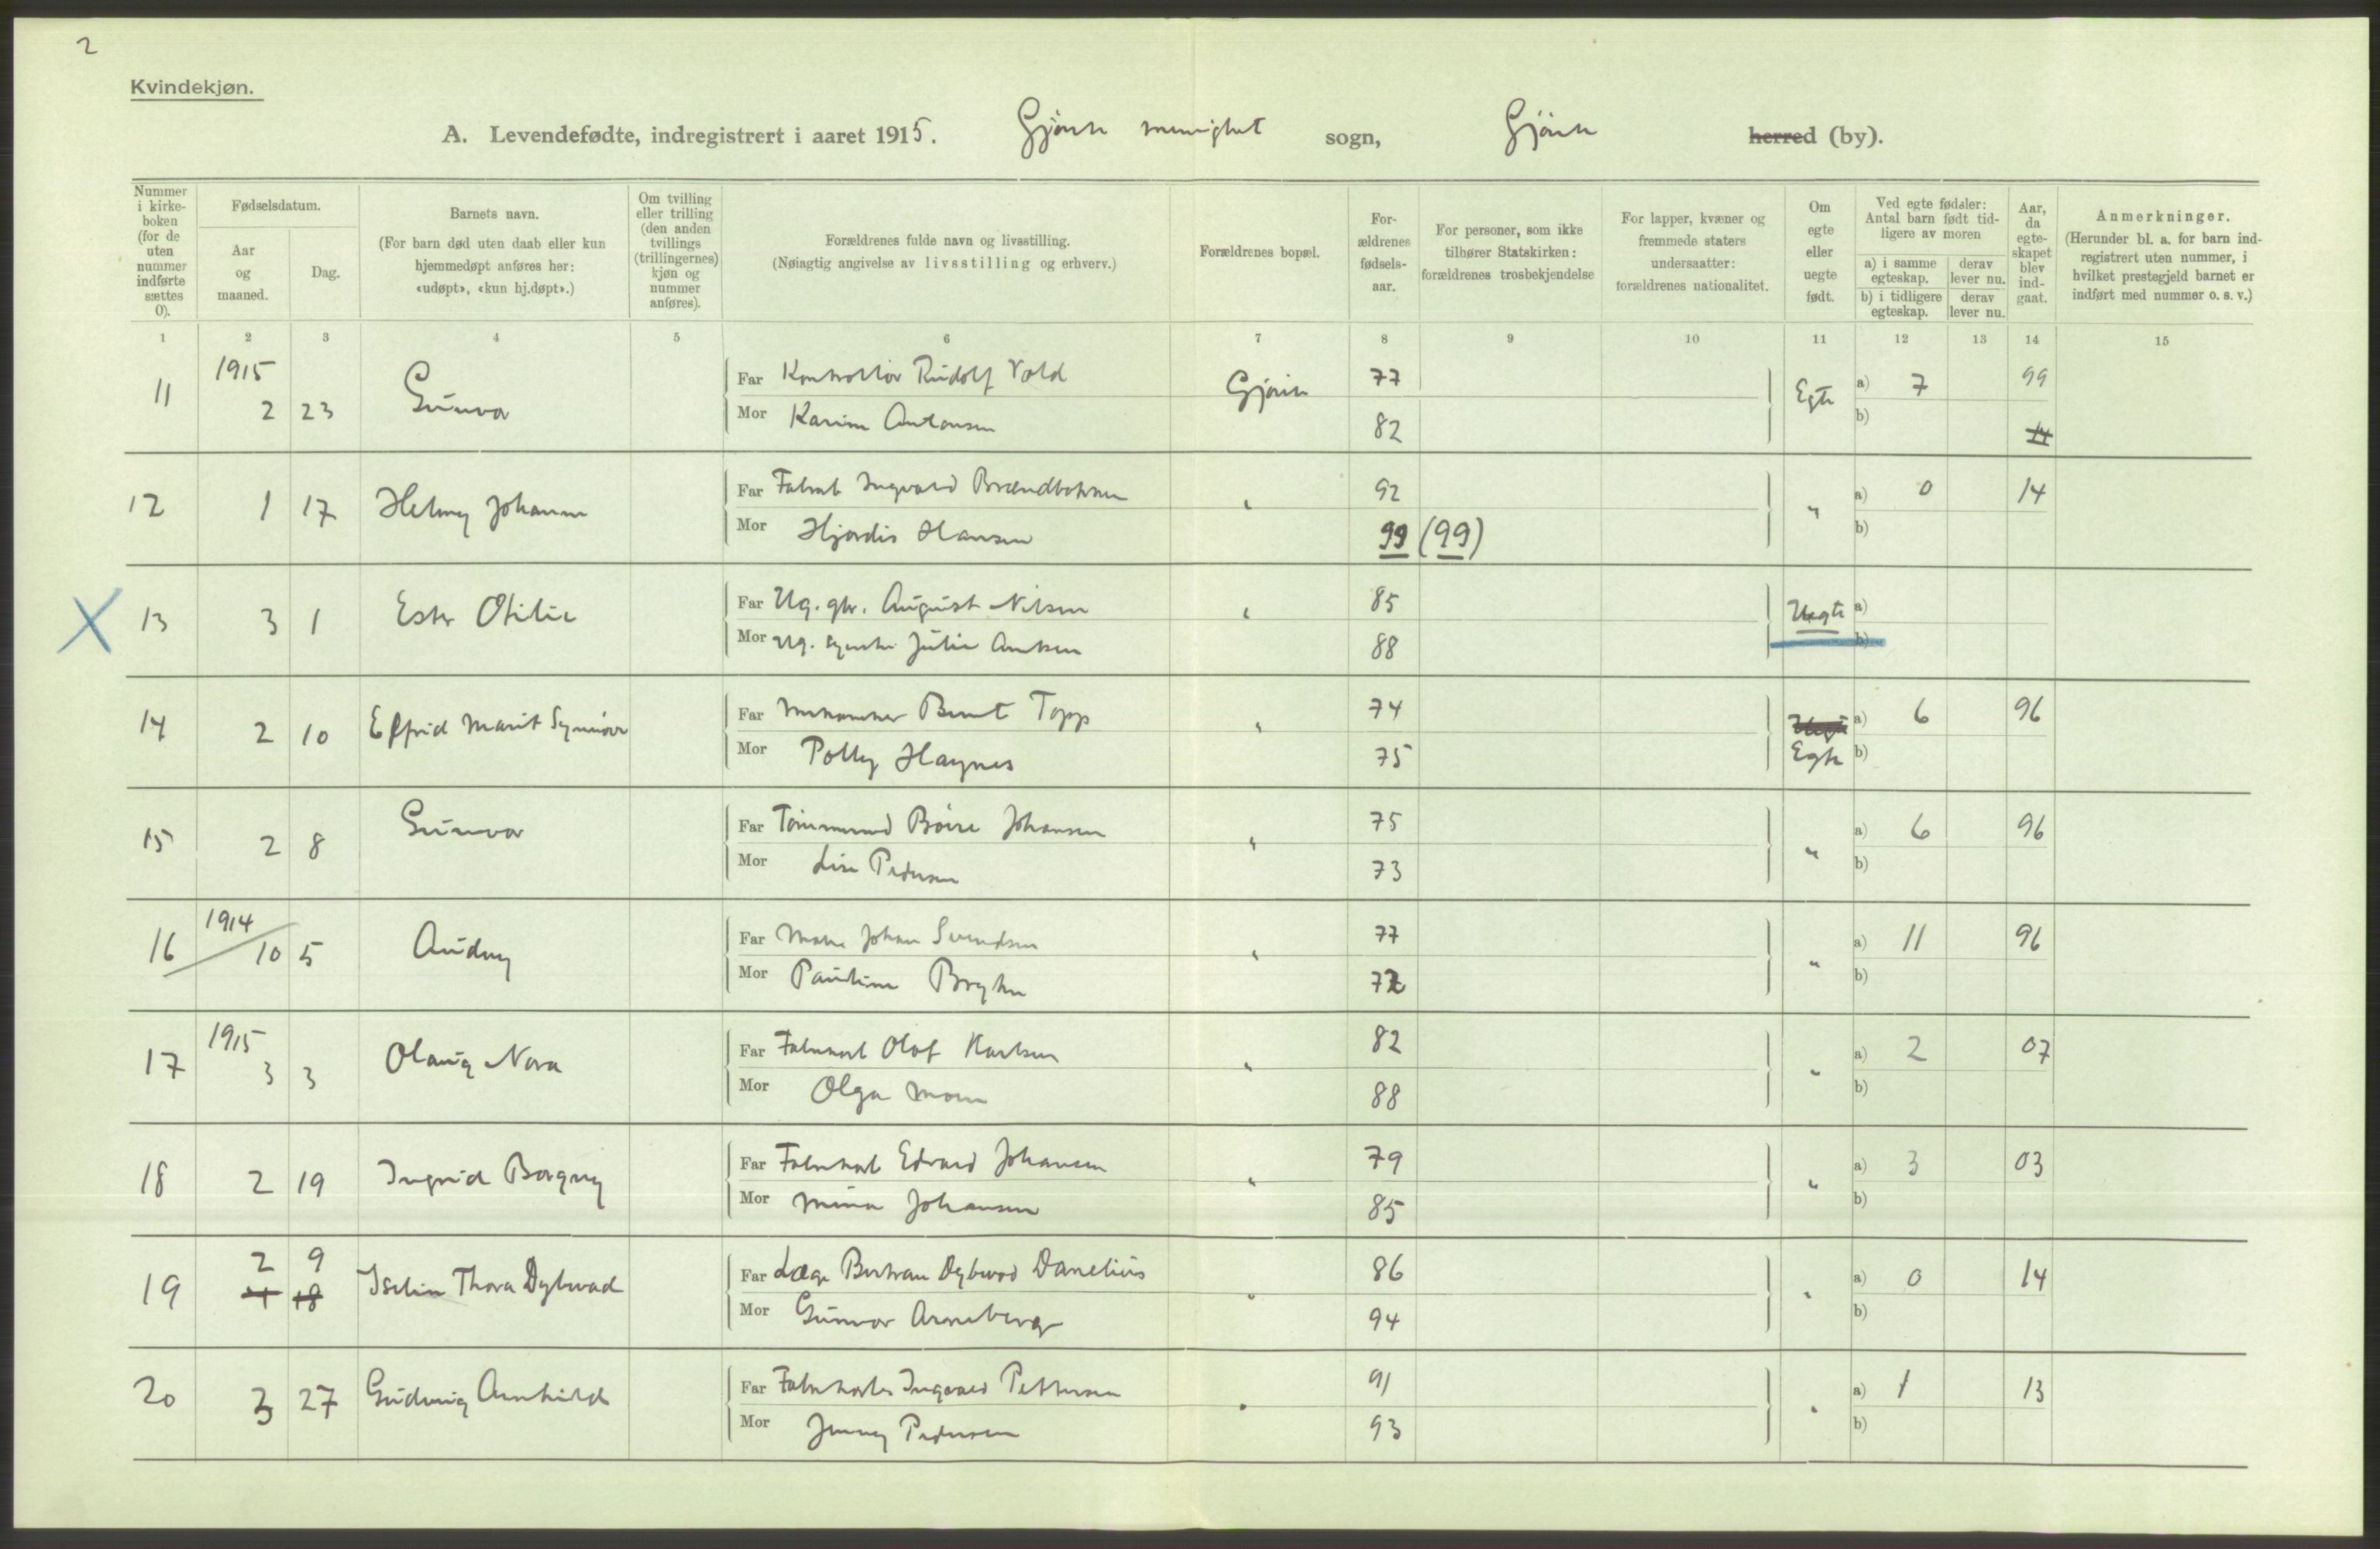 2
Kvindekjøn.
A. Levendefødte, indregistrert i aaret 1915. Gjøvik menighet sogn, Gjøvik herred (by).
Nummer i kirkeboken (for de uten nummer indførte sættes 0).
Fødselsdatum.
Aar og maaned.
Dag.
Barnets navn.
(For barn død uten daab eller kun hjemmedøpt anføres her: «udøpt», «kun hj.døpt».)
Om tvilling eller trilling (den anden tvillings (trillingernes) kjøn og nummer anføres).
Forældrenes fulde navn og livsstilling.
(Nøiagtig angivelse av livsstilling og erhverv.)
Forældrenes bopæl.
Forældrenes fødselsaar.
For personer, som ikke tilhører Statskirken: forældrenes trosbekjendelse
For lapper, kvæner og fremmede staters undersaatter: forældrenes nationalitet.
Om egte eller uegte født.
Ved egte fødsler: Antal barn født tidligere av moren
a) i samme egteskap. derav lever nu.
b) i tidligere egteskap. derav lever nu.
Aar, da egteskapet blev indgaat.
Anmerkninger.
(Herunder bl. a. for barn indregistrert uten nummer, i hvilket prestegjeld barnet er indført med nummer o. s. v.)
1 2 3 4 5 6 7 8 9 10 11 12 13 14 15
11 1915 2 23 Gunvor Far Kontrollør Rudolf Vold Gjøvik 77 Egte a) 7 99
Mor Karine Antonsen 82 b) 14
12 1 17 Helmy Johanne Far Fabrarb Ingvald Brændbakken " 92 " a) 0 14
Mor Hjørdis Hansen 99 (99) b)
X 13 3 1 Ester Otilie Far Ug. August Nilsen " 85 Uegte a)
Mor Ug. Julie 88 b)
14 2 10 Marit Far Bernt Topp " 74 Uegte a) 6 96
Mor Polly Haynes 75 Egte b)
15 2 8 Gunvor Far Tømmermand Johansen " 75 " a) 6 96
Mor Lise Pedersen 73 b)
16 1914 10 5 Audny Far Johan Svendsen " 77 " a) 11 96
Mor Pauline Bryhn 72 b)
17 1915 3 3 Olaug Nora Far Fabrikarb Olaf Karlsen " 82 " a) 2 07
Mor Olga Moen 88 b)
18 2 19 Ingrid Borgny Far Fabrikarb Edvard Johansen " 79 " a) 3 03
Mor Mina Johansen 85 b)
19 2 9 1 18 Iselin Thora Dybwad Far Læge Bertram Dybwad 86 " a) 0 14
Mor Gunvor Arneberg 94 b)
20 3 27 Gudveig Annhild Far Fabrikarb Ingvald Pettersen " 91 " a) 1 13
Mor Jenny Pedersen 93 b)